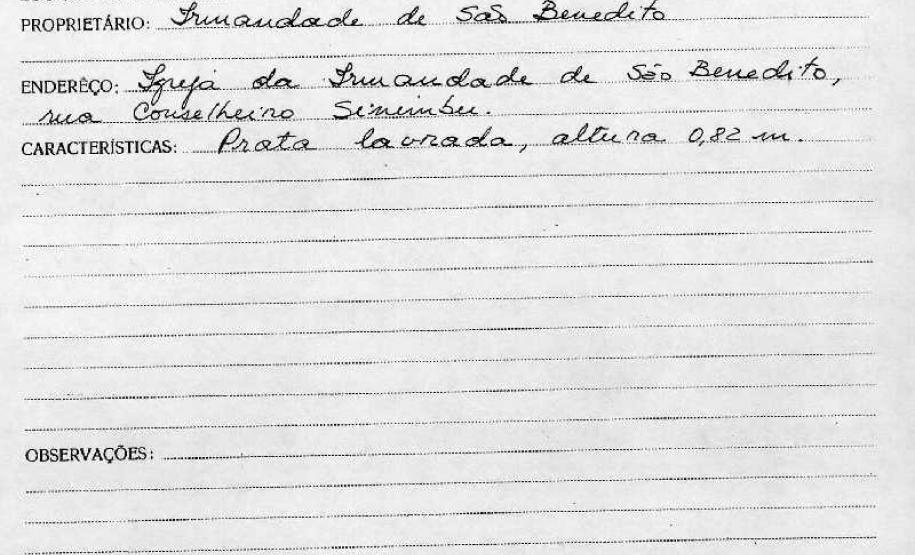 PROPRIETÁRIO: Irmandade de São Benedito
ENDERÊÇO: Igreja da Irmandade de São Benedito,
rua Conselheiro Sinembu.
CARACTERÍSTICAS: Prata lavrada, altura 0,82 m.
OBSERVAÇÕES: